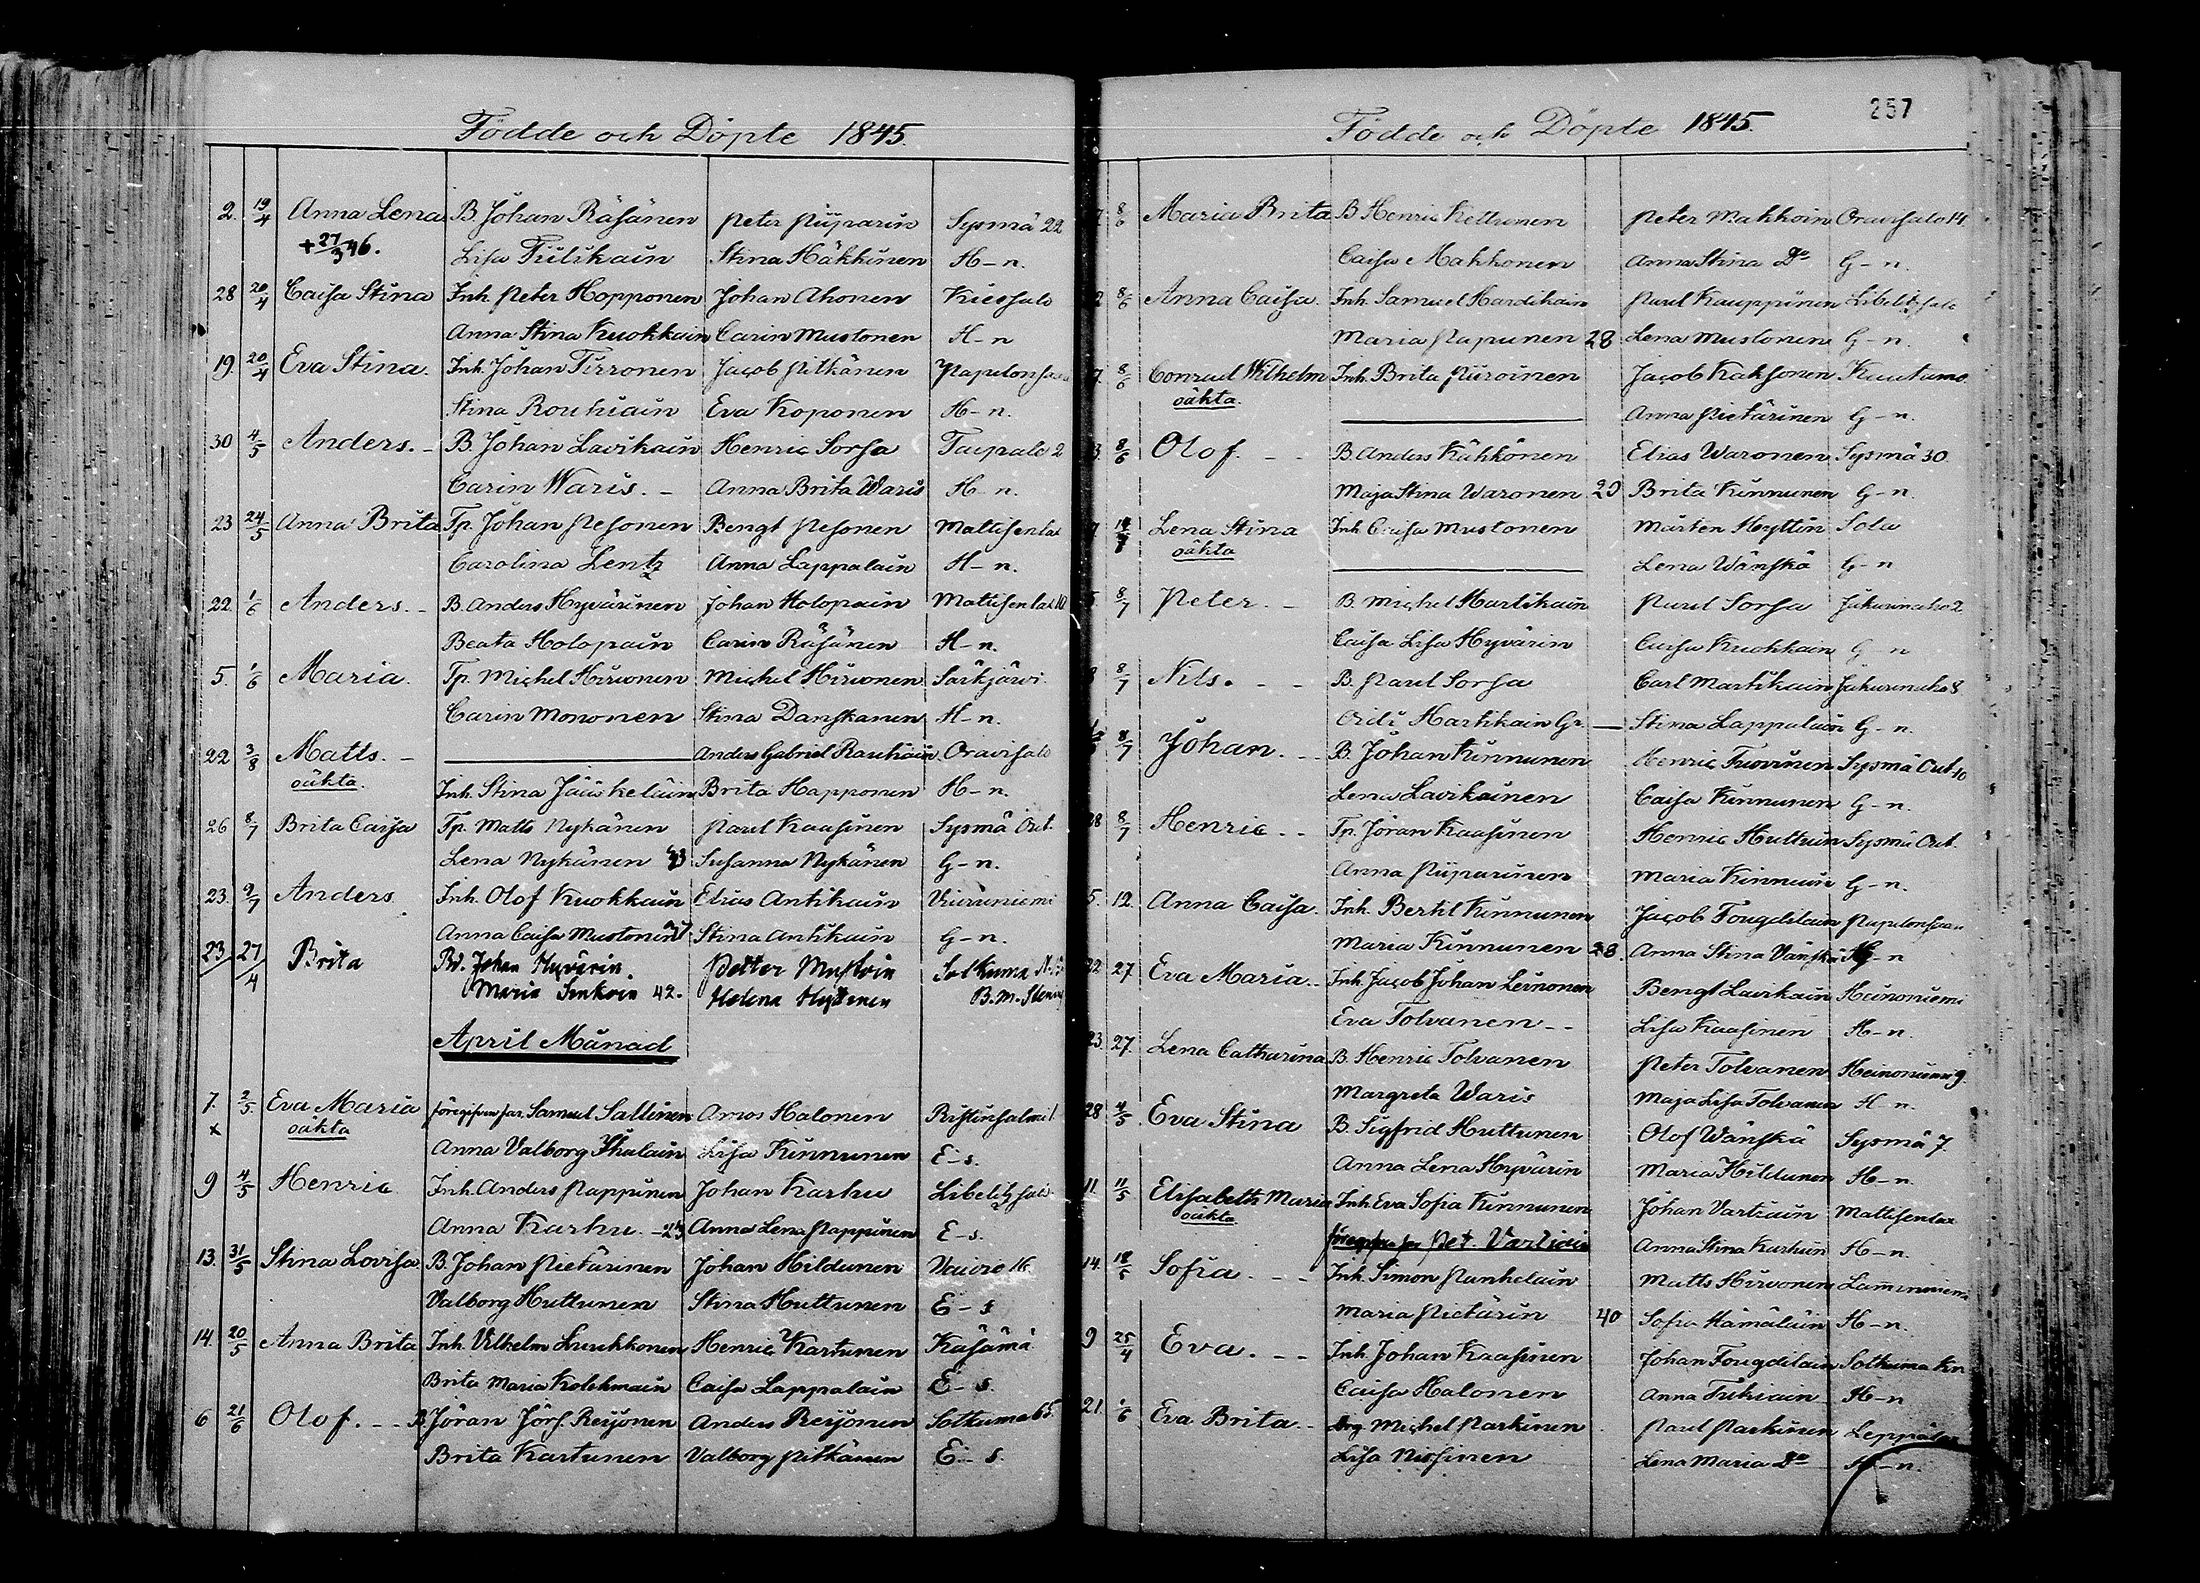 Födde och Döpte 1845.
2. 19/4 Anna Lena B. Johan Räsänen Peter Piiparin Sysmä 22
+ 27/3 46. Lisa Tiilikain Stina Häkkinen H-n.
28 20/4 Caisa Stina Inh. Peter Hopponen Johan Ahonen Kiessalo
Anna Stina Kuokkain Carin Mustonen H-n
19. 20/4 Eva Stina. Inh. Johan Tirronen Jacob Pitkänen
Stina Rouhiain Eva Koponen H-n.
30 4/5 Anders. - B. Johan Lavikain Henric Sorsa Taipale 2
Carin Waris. - Anna Brita Waris H-n.
23 24/5 Anna Brita Tp. Johan Pesonen Bengt Pesonen Mattisenlax
Carolina Lentz Anna Lappalain H-n.
22 1/6 Anders. - B. Anders Hyvärinen Johan Holopain Mattisenlax 10
Beata Holopain Carin Räsänen H-n.
5. 1/6 Maria. Tp. Michel Hirvonen Michel Hirvonen Särkjärvi
Carin Mononen Stina Danskanen H-n.
22 3/8 Matts. - Anders Gabriel Rauhiain Oravisalo
oäkta. Inh. Stina Jääskeläin Brita Happonen H-n.
26 8/7 Brita Caisa Tp. Matts Nykänen Paul Kaasinen Sysmä Out.
Lena Nykänen 43 Susanna Nykänen G-n.
23. 9/7 Anders Inh. Olof Kuokkain Elias Antikain
Anna Caisa Mustonen Stina Antikain G-n.
23 27/4 Brita Bd. Johan Hyvärin. Petter Mustoin
Maria Simkoin 42. Helena Hyttinen
April Månad
7. 2/5. Eva Maria föregifven far Samuel Sallinen Amos Halonen Ristinsalmi 1
x oäkta Anna Valborg Ihalain Lisa Kinnunen E-s.
9 4/5 Henric Inh. Anders Pappinen Johan Karhu Libelitzsalo
Anna Karhu. - 23 Anna Lena Pappinen E-s.
13. 31/5 Stina Lovisa B. Johan Pietärinen Johan Hildunen Vaivio 16
Valborg Huttunen Stina Huttunen E-s
14. 20/5 Anna Brita Inh. Vilhelm Luukkonen Henric Kartunen Käsämä
Brita Maria Kolehmain Caisa Lappalain E-s.
6 21/6 Olof. - - B. Jöran Jörs. Reijonen Anders Reijonen Sotkuma 65.
Brita Kartunen Valborg Pitkänen E-s.
257
Födde och Döpte 1845.
7. 8/6 Maria Brita B Henric Kettunen Peter Makkoin Oravisalo 14.
Caisa Makkonen Anna Stina Do G-n.
2 8/6 Anna Caisa. Inh. Samuel Hardikain Paul Kauppinen Libelitzsalo
Maria Papunen 28 Lena Mustonen G-n.
7. 8/6 Conrad Wilhelm Inh. Brita Piiroinen Jacob Kaksonen Kuutumo.
oäkta. Anna Pietärinen G-n.
3. 8/6 Olof. - - B. Anders Kähkönen Elias Waronen Sysmä 30.
Maja Stina Waronen 29 Brita Kinnunen G-n.
7 Lena Stina Inh Caisa Mustonen Mårten Heyttin Sola
oäkta Lena Wänskä G-n
5. 8/7 Peter. - B. Michel Hartikain Paul Sorsa Jukurinaho 2
Caisa Lisa Hyvärin Caisa Kuokkain G-n
8/7 Nils. - - B. Paul Sorsa Carl Martikain Jukurinaho 8
Hartikain Gr. Stina Lappalain G-n.
8/7 Johan. - - B. Johan Kinnunen Henric Tuovinen Sysmä Out. 10
Lena Lavikainen Caisa Kinnunen G-n.
28 8/7 Henric. - - Tp. Jöran Kaasinen Henric Huttuin Sysmä Out.
Anna Piiparinen Maria Kinnuin G-n.
5. 12. Anna Caisa. Inh. Bertil Kinnunen Jacob Fougdilain
Maria Kinnunen 28. Anna Stina Vänskä H-n
22. 27 Eva Maria. - Inh. Jacob Johan Leinonen Bengt Lavikain Heinoniemi
Eva Tolvanen - - Lisa Kaasinen H-n.
23. 27. Lena Catharina B. Henric Tolvanen Peter Tolvanen Heinoniemi 9.
Margreta Waris Maja Lisa Tolvanen H-n.
28 4/5. Eva Stina B. Sigfrid Huttunen Olof Wänskä Sysmä 7.
Anna Lena Hyvärin Maria Hildunen H-n.
11. 11/5 Elisabeth Maria Inh. Eva Sofia Kinnunen Johan Vartiain Mattisenlax
oäkta föregifven far Pet. Vartiain Anna Stina Karhuin H-n.
14. 18/5 Sofia. - - Inh. Simon Punkelain Matts Hirvonen
Maria Pietärin 40 Sofia Hämäläin H-n.
9 25/4 Eva. - - Inh. Johan Kaasinen Johan Fougdilain Sotkuma Kn
Caisa Halonen Anna Tukiain H-n
21. 1/6 Eva Brita. - Michel Parkinen Paul Parkinen Leppälax
Lisa Nissinen Lena Maria Do H-n.